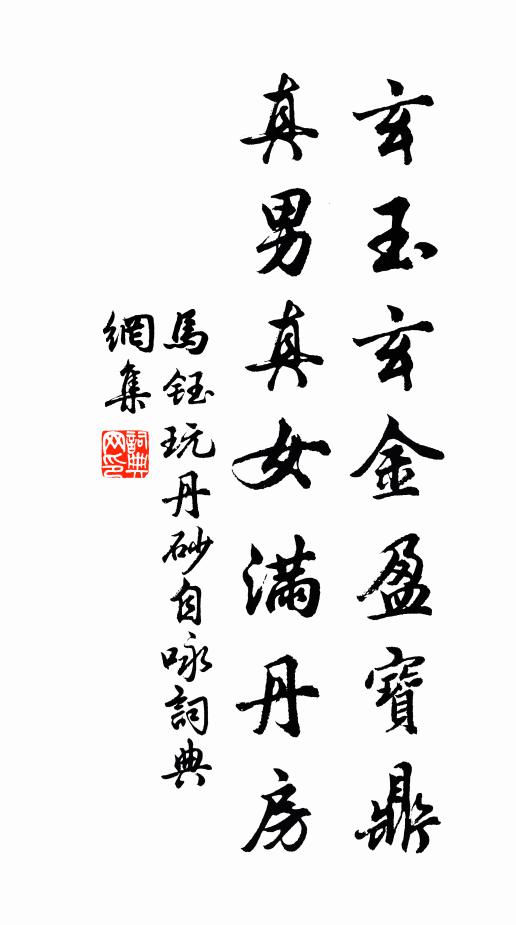 玄玉玄金盈寶鼎
真男真女滿丹房
馬鈺玩丹砂自咏詞典
網集
詞典網印